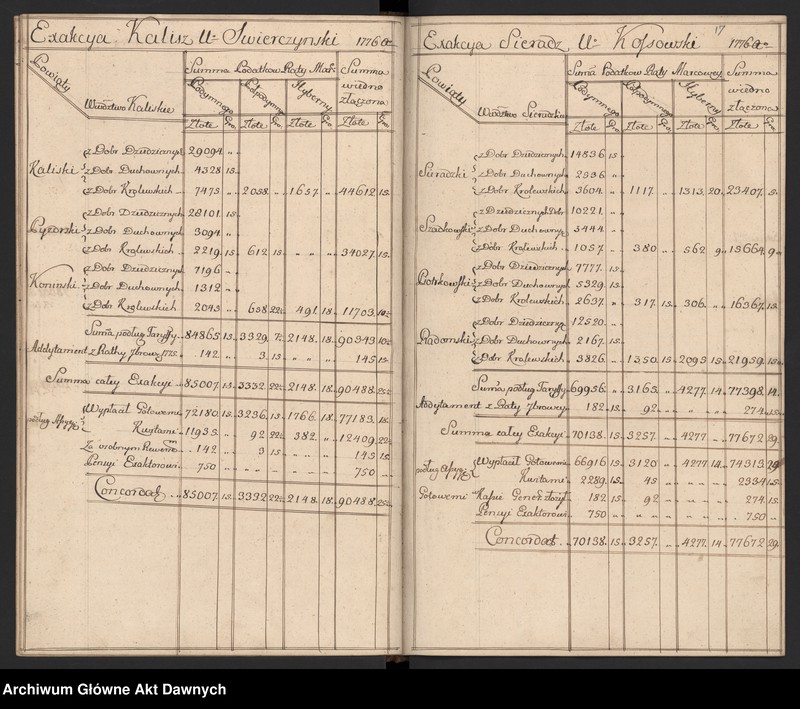 Exakcya Kalisz Ur Swierczynski 1776 Ao
Powiaty
Wdztwo Kaliskie
Summa Podatkow Raty Mar.
Summa wiedno złączona
Podymnego
Hyberny
Złote Gro. Złote Gro. Złote Gro. Złote Gro.
z Dobr Dziedzicznych 29094 „
Kaliski z Dobr Duchownych 4328 15
z Dobr Krolewskich 7475 „ 2058 „ 1657 „ 44612 15
z Dobr Dziedzicznych 28101 15
z Dobr Duchownych 3094 „
z Dobr Krolewskich 2219 15 612 15 „ „ 34027 15
z Dobr Dziedzicznych 7196 „
Koninski z Dobr Duchownych 1312 „
z Dobr Krolewskich 2043 „ 658 22 491 18 11703
Suma podług Taryffy 84865 15 3329 2148 18 90343
Addytament z Ratty 7browey 1775 142 „ 3 15 „ „ 145 15
Summa całey Exakcyi 85007 15 3332 22 2148 18 90488
Wypłacił Gotowemi 72180 15 3236 15 1766 18 77183 18
Kwitami 11935 „ 92 22 382 „ 12409 22
Za osobnym Rewersem 142 „ 3 15 „ „ 145 15
Pensyi Exaktorowi 750 „ „ „ „ „ 750 „
Concordat 85007 15 3332 22 2148 18 90488
17
Exakcya Sieradz Ur Kossowski 1776 Ao
Powiaty
Wdztwo Sieradzkie
Suma Podatkow Raty Marcowey
Summa wiedno złączona
Podymnego
Hyberny
Złote Gro. Złote Gro. Złote Gro. Złote Gro.
z Dobr Dziedzicznych 14836 15
Sieradzki z Dobr Duchownych 2536 „
z Dobr Krolewskich 3604 „ 1117 „ 1313 20 23407 5
z Dziedzicznych Dobr 10221 „
Szadkowski z Dobr Duchownych 3444 „
z Dobr Krolewskich 1057 „ 380 „ 562 9 15664 9
z Dobr Dziedzicznych 7777 15
Piotrkowski z Dobr Duchownych 5329 15
z Dobr Krolewskich 2637 „ 317 15 306 „ 16367 15
z Dobr Dziedzicznych 12520 „
Radomski z Dobr Duchownych 2167 15
z Dobr Krolewskich 3826 „ 1350 15 2095 15 21959 15
Suma podług Taryffy 69956 „ 3165 „ 4277 14 77398 14
Addytament z Raty 7browey 182 15 92 „ „ „ 274 15
Summa całey Exakcyi 70138 15 3257 „ 4277 „ 77672 29
Wypłacił Gotowemi 66916 15 3120 „ 4277 14 74313 29
Kwitami 2289 15 45 „ „ „ 2334 15
Gotowemi 182 15 92 „ „ „ 274 15
Pensyi Exaktorowi 750 „ „ „ „ „ 750 „
Concordat 70138 15 3257 „ 4277 14 77672 29
Archiwum Główne Akt Dawnych